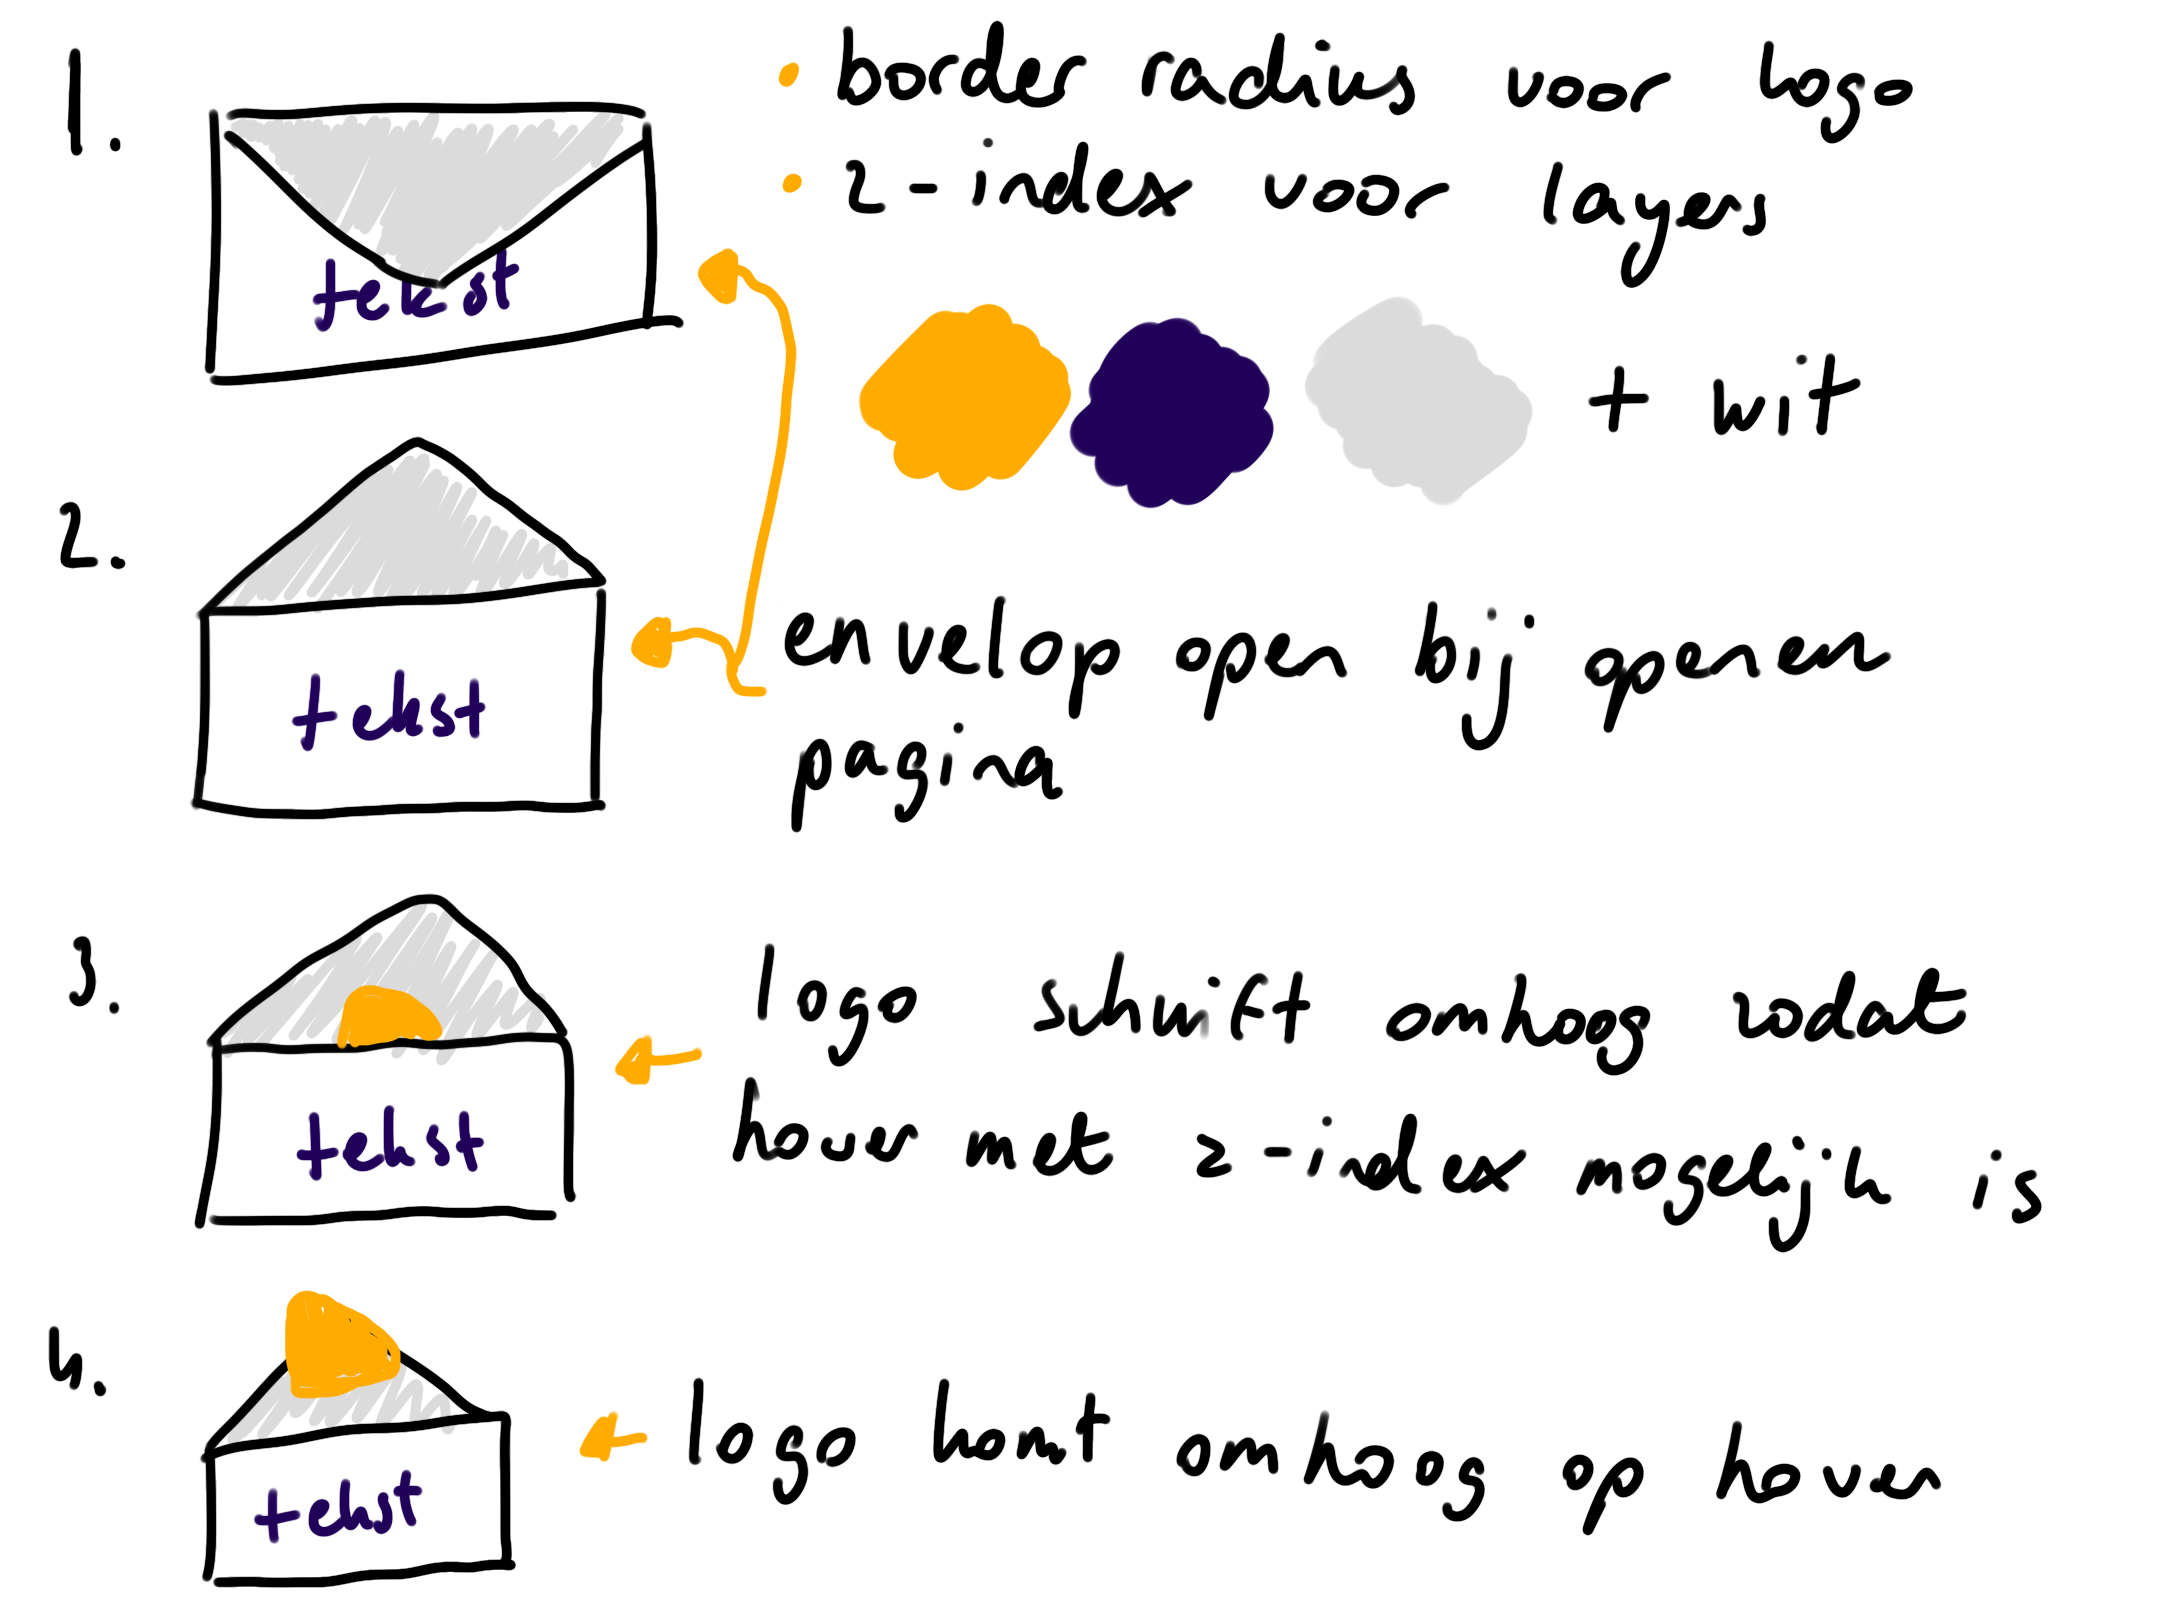 1.
• border radius voor logo
• z-index voor layers
tekst
+ wit
2.
envelop open bij openen
pagina
tekst
3.
logo schuift omhoog zodat
hover met z-index mogelijk is
tekst
4.
logo komt omhoog op hover
tekst